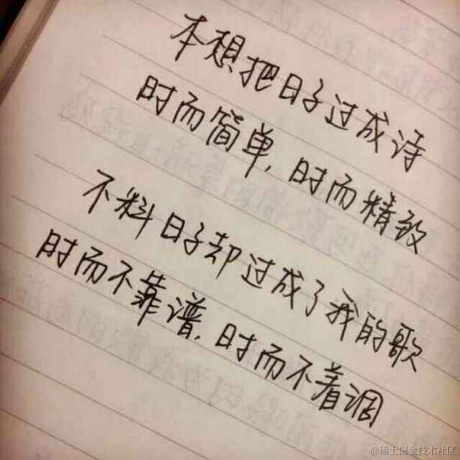 本想把日子过成诗
时而简单,时而精致
不料日子却过成了我的歌
时而不靠谱,时而不着调
@稀土掘金技术社区